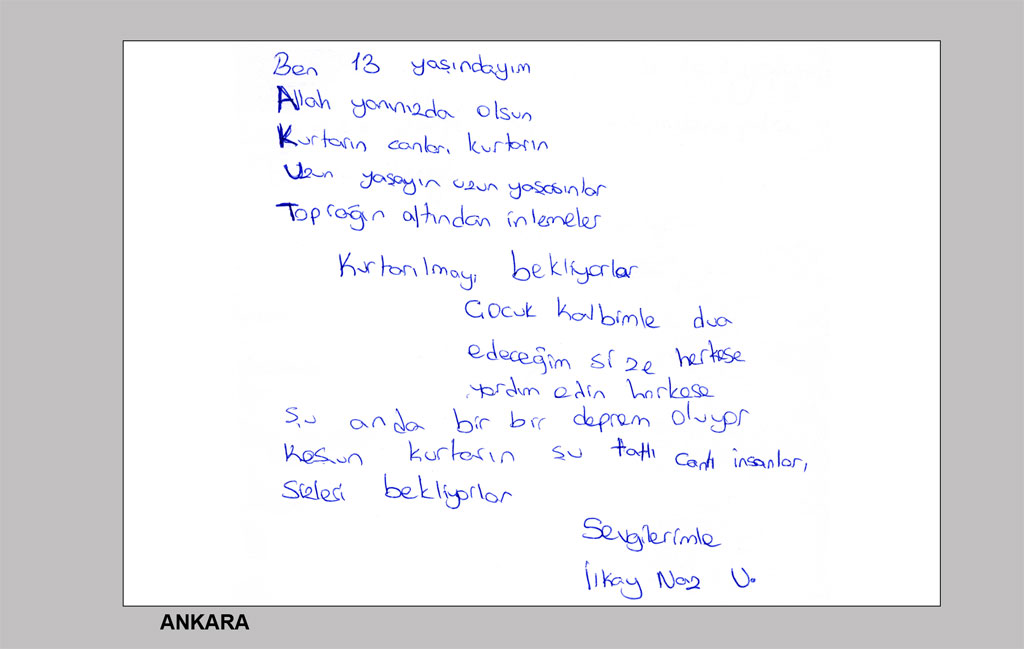 Ben 13 yaşındayım
Allah yanınızda olsun
Kurtarın canları kurtarın
Uzun yaşayın uzun yaşasınlar
Toprağın altından inlemeler
Kurtarılmayı bekliyorlar
Çocuk kalbimle dua
edeceğim size herkese
yardım edin herkese
Şu anda bir bir deprem oluyor
Koşun kurtarın şu tatlı canlı insanları
Sizleri bekliyorlar
Sevgilerimle
İlkay Naz U.
ANKARA